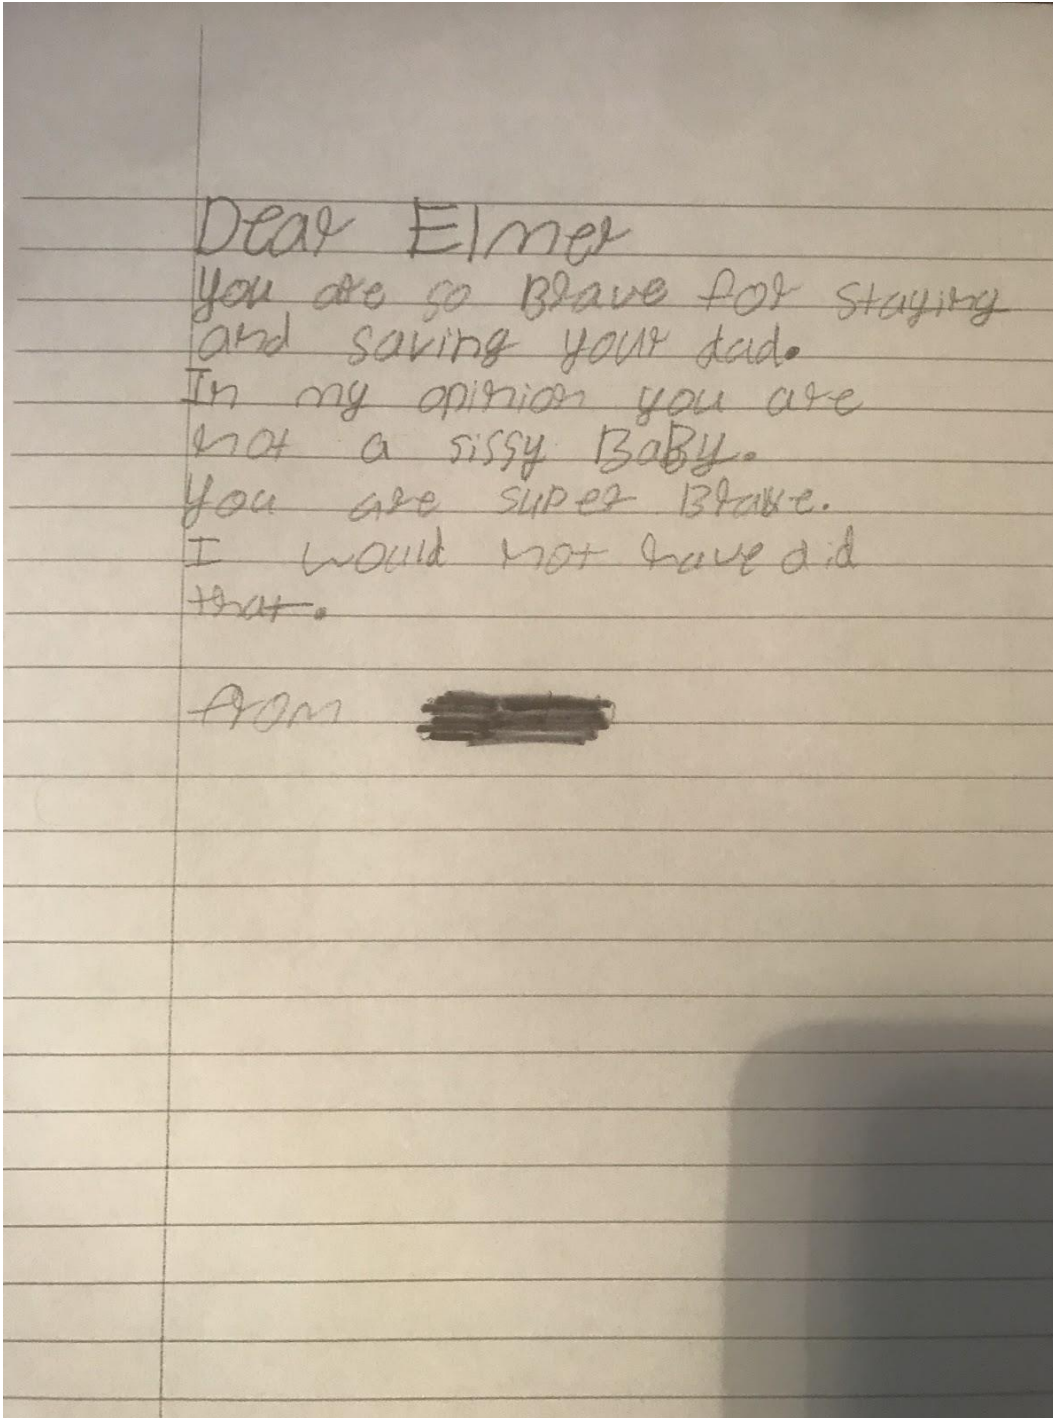 Dear Elmer
You are so Brave for staying
and saving your dad.
In my opinion you are
not a sissy BaBy.
You are super Brave.
I would not have did
that.
from